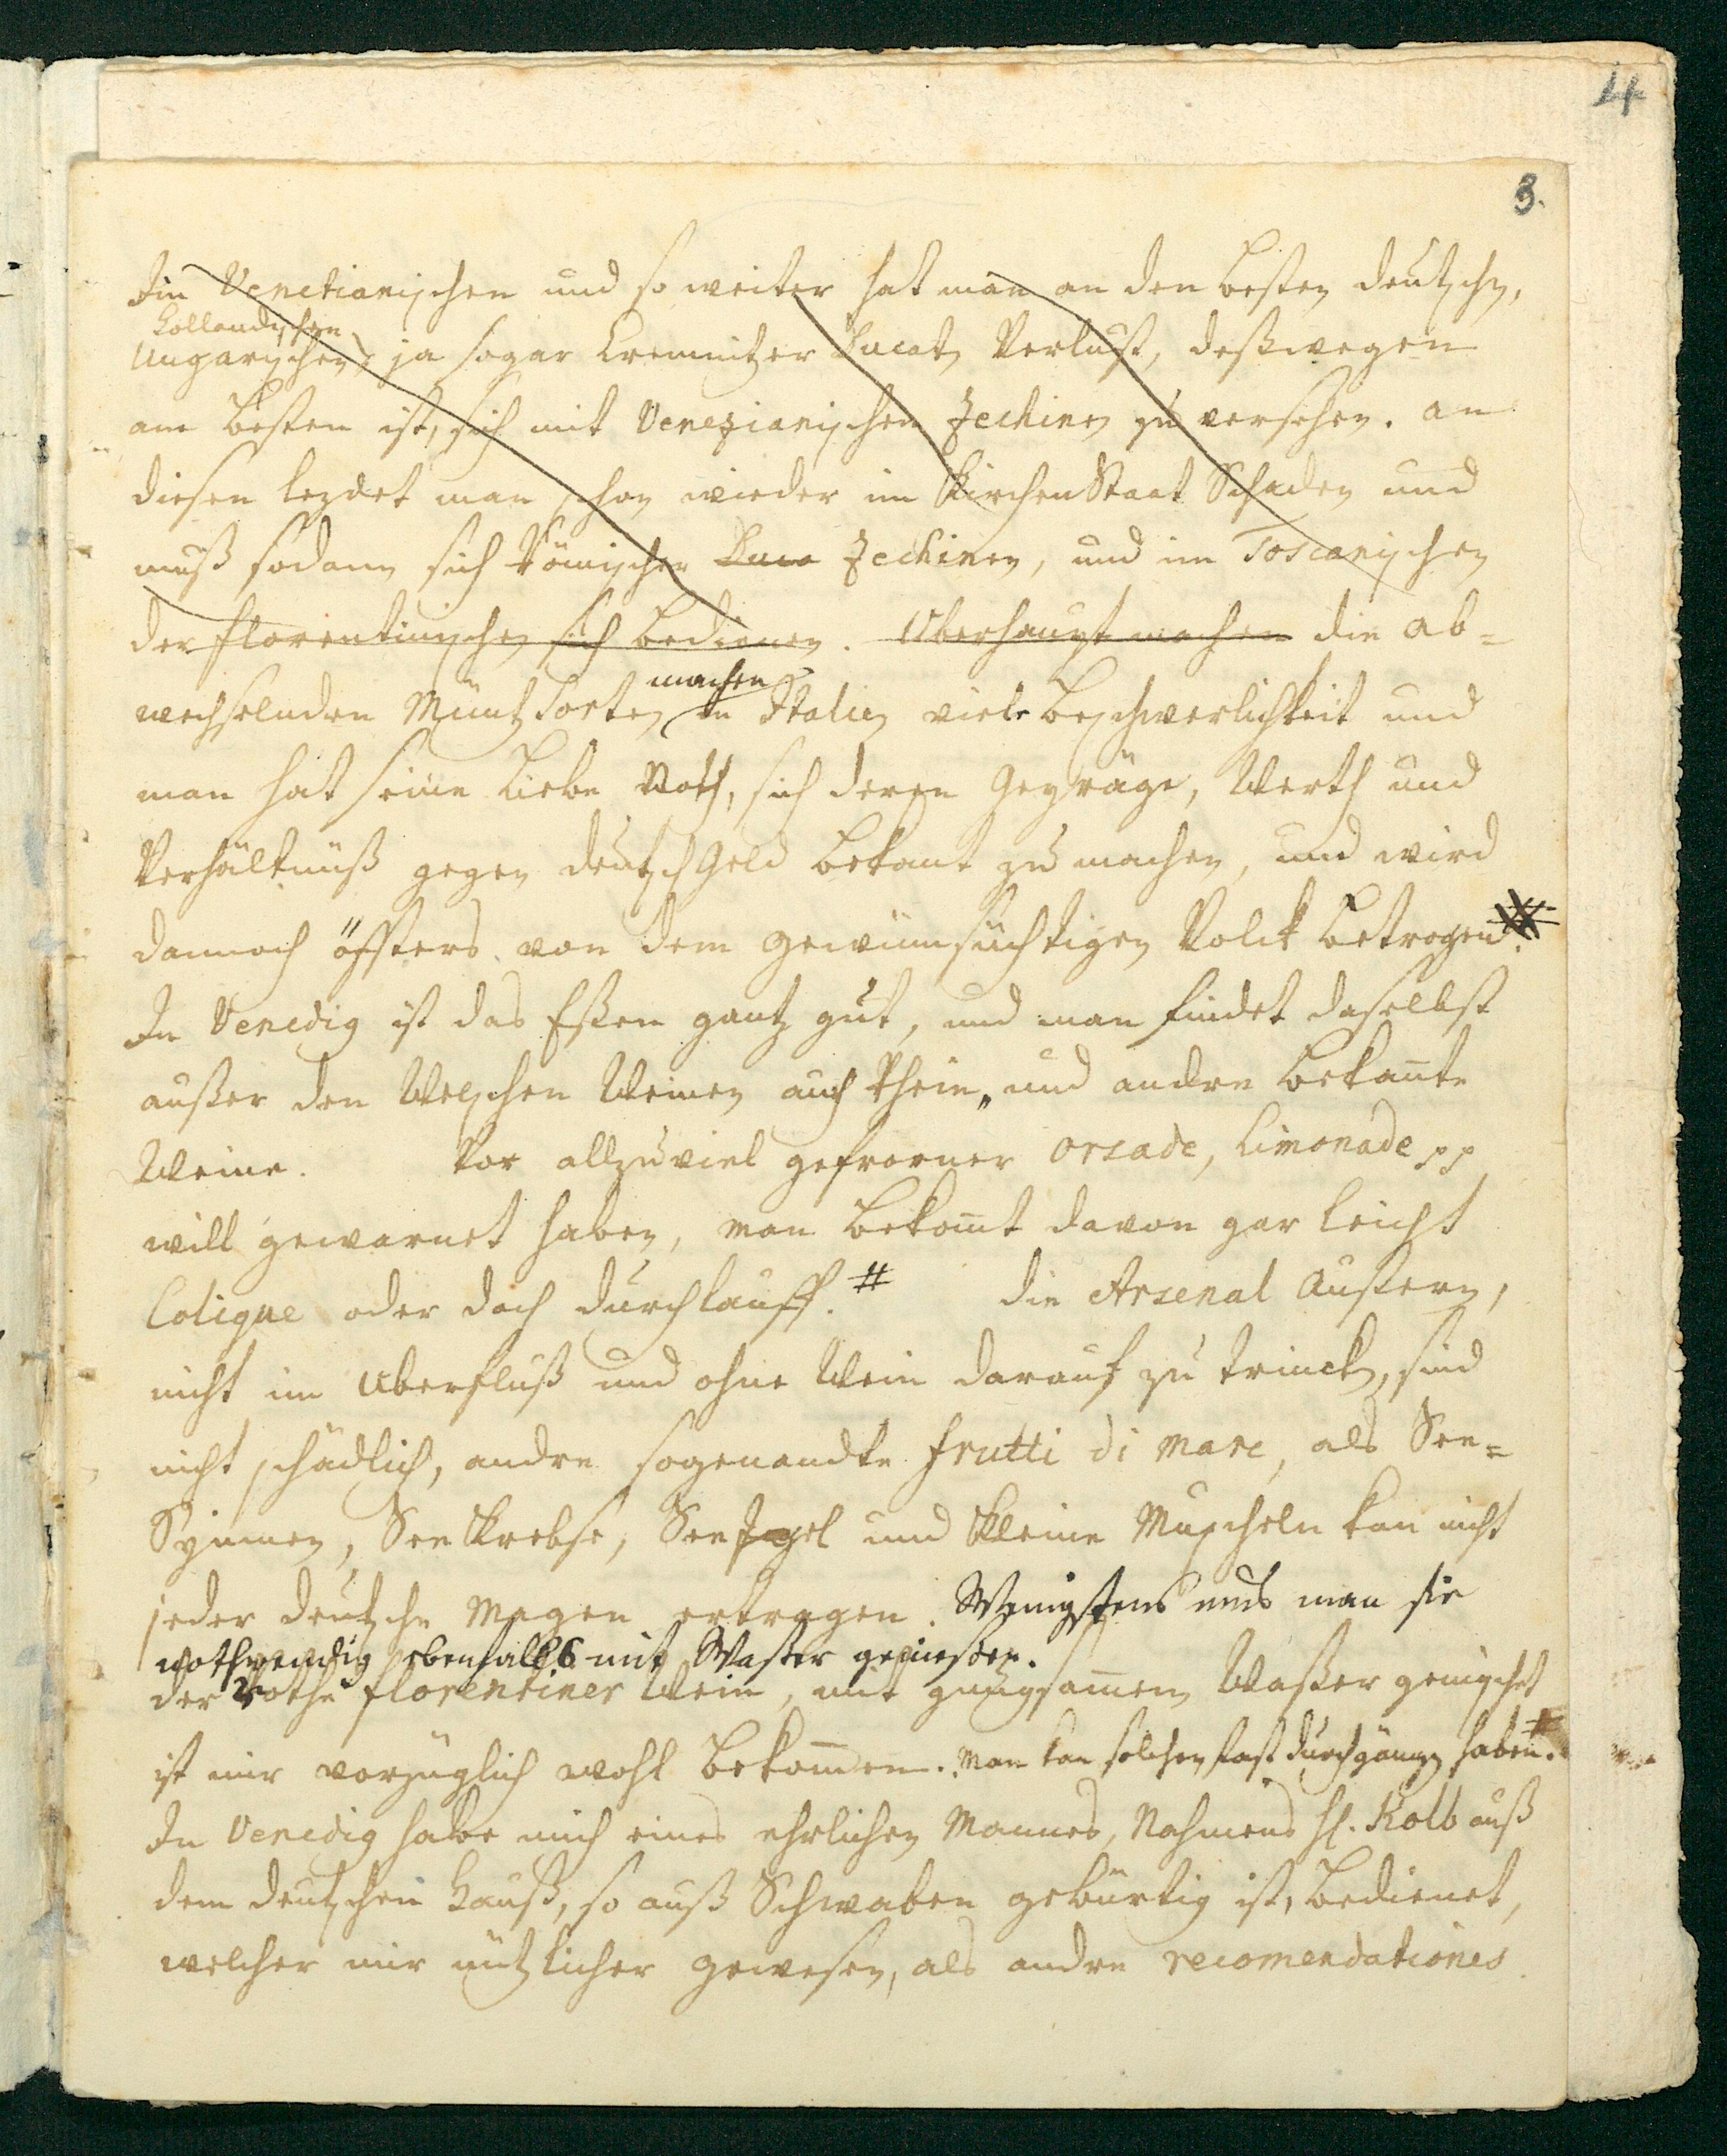 4
3.
Im Venetianischen und so weiter hat man an den besten deutschen,
Holländischen
Ungarischen, ja sogar Cremnitzer Ducaten Verlust, deßwegen
am besten ist, sich mit Venezianischen Zechinen zu versehen. an
diesen leydet man schon wieder im Kirchen Staat Schaden und
muß sodann sich Römischer Duca Zechinen, und im Toscanischen
der florentinischen sich bedienen. Uberhaupt machen die ab-
machen
wechselnden Müntz Sorten in Italien viele Beschwerlichkeit und
man hat seine liebe Noth, sich deren Gepräge, Werth und
Verhältnüß gegen deutsch Geld bekant zu machen, und wird
dannoch öffters von dem gewinnsüchtigen Volck betrogen.
In Venedig ist das Eßen gantz gut, und man findet daselbst
außer den Welschen Weinen auch Rhein, und andre bekan̄te
Weine. Vor allzuviel gefrorner Orsade, Limonade pp
will gewarnet haben, man bekom̄t davon gar leicht
Colique oder doch Durchlauff. # Die Arsenal Austern,
nicht im Uberfluß und ohne Wein darauf zu trincken, sind
nicht schädlich, andre sogenandte frutti di mare, als See-
Spinnen, See Krebse, See Igel und kleine Muscheln kan nicht
jeder deutsche Magen ertragen. Wenigstens mus man sie
nothwendig ebenfalls mit Waßer genießen.
der rothe florentiner Wein, mit genugsam̄en Waßer gemischet
ist mir vorzüglich wohl bekom̄en. Man kan solchen fast durchgängig haben. #
In Venedig habe mich eines ehrlichen Mannes, Nahmens H. Kolb auß
dem deutschen Hauß, so auß Schwaben gebürtig ist, bedienet,
welcher mir nützlicher gewesen, als andre recomendationes